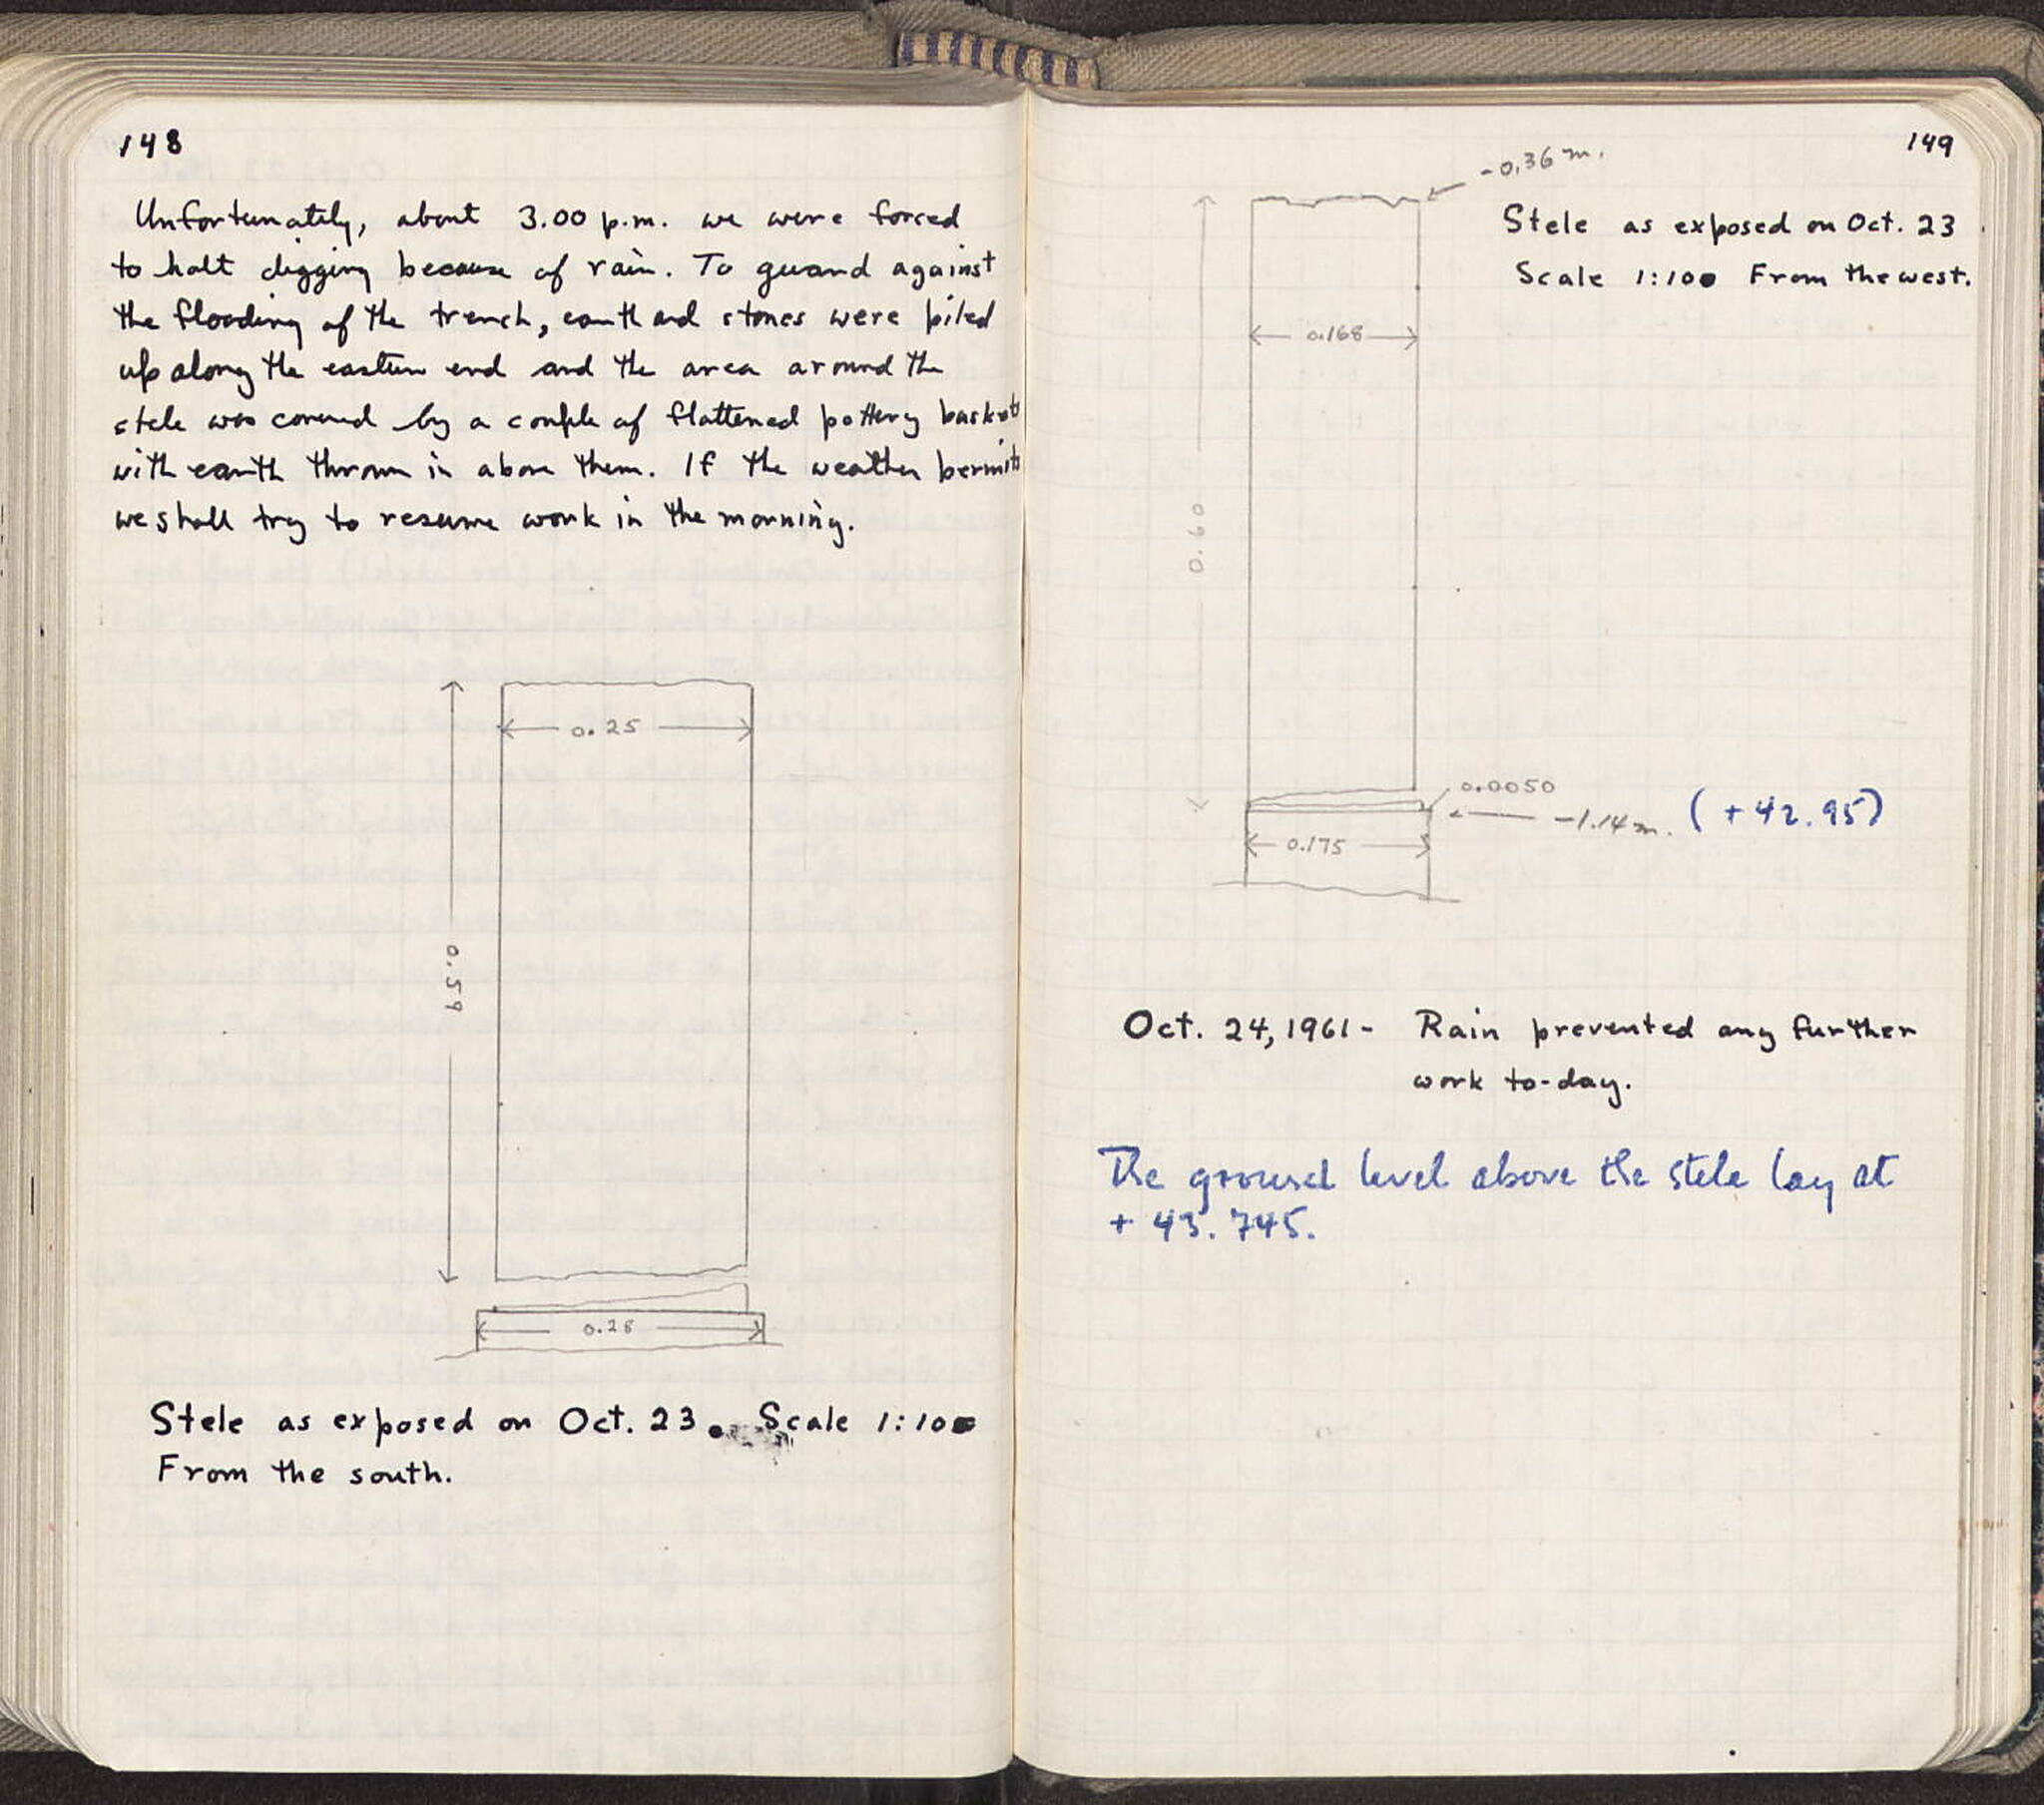 148
Unfortunately, about 3.00 p.m. we were forced
to halt digging because of rain. To guard against
the flooding of the trench, earth and stones were piled
up along the eastern end and the area around the
stele was covered by a couple of flattened pottery baskets
with earth thrown in above them. If the weather permits
we shall try to resume work in the morning.
0.25
0.59
0.28
Stele as exposed on Oct. 23. Scale 1:10
From the south.
149
-0.36 m.
Stele as exposed on Oct. 23
Scale 1:10 From the west.
0.168
0.60
0.0050
-1.14 m. (+42.95)
0.175
Oct. 24, 1961- Rain prevented any further
work to-day.
The ground level above the stele lay at
+ 43.745.